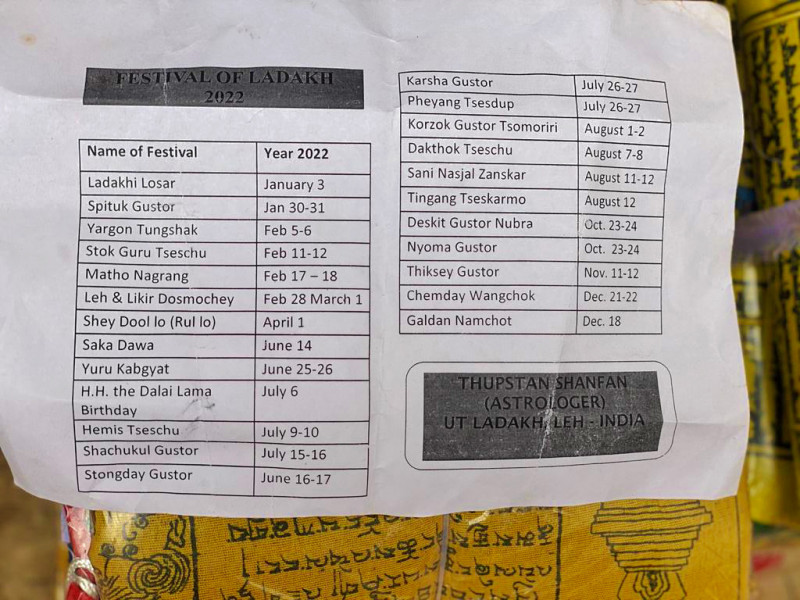 FESTIVAL OF LADAKH
2022
Name of Festival Year 2022
Ladakhi Losar January 3
Spituk Gustor Jan 30-31
Yargon Tungshak Feb 5-6
Stok Guru Tseschu Feb 11-12
Matho Nagrang Feb 17 – 18
Leh & Likir Dosmochey Feb 28 March 1
Shey Dool lo (Rul lo) April 1
Saka Dawa June 14
Yuru Kabgyat June 25-26
H.H. the Dalai Lama July 6
Birthday
Hemis Tseschu July 9-10
Shachukul Gustor July 15-16
Stongday Gustor June 16-17
Karsha Gustor July 26-27
Pheyang Tsesdup July 26-27
Korzok Gustor Tsomoriri August 1-2
Dakthok Tseschu August 7-8
Sani Nasjal Zanskar August 11-12
Tingang Tseskarmo August 12
Deskit Gustor Nubra Oct. 23-24
Nyoma Gustor Oct. 23-24
Thiksey Gustor Nov. 11-12
Chemday Wangchok Dec. 21-22
Galdan Namchot Dec. 18
THUPSTAN SHANFAN
(ASTROLOGER)
UT LADAKH, LEH - INDIA